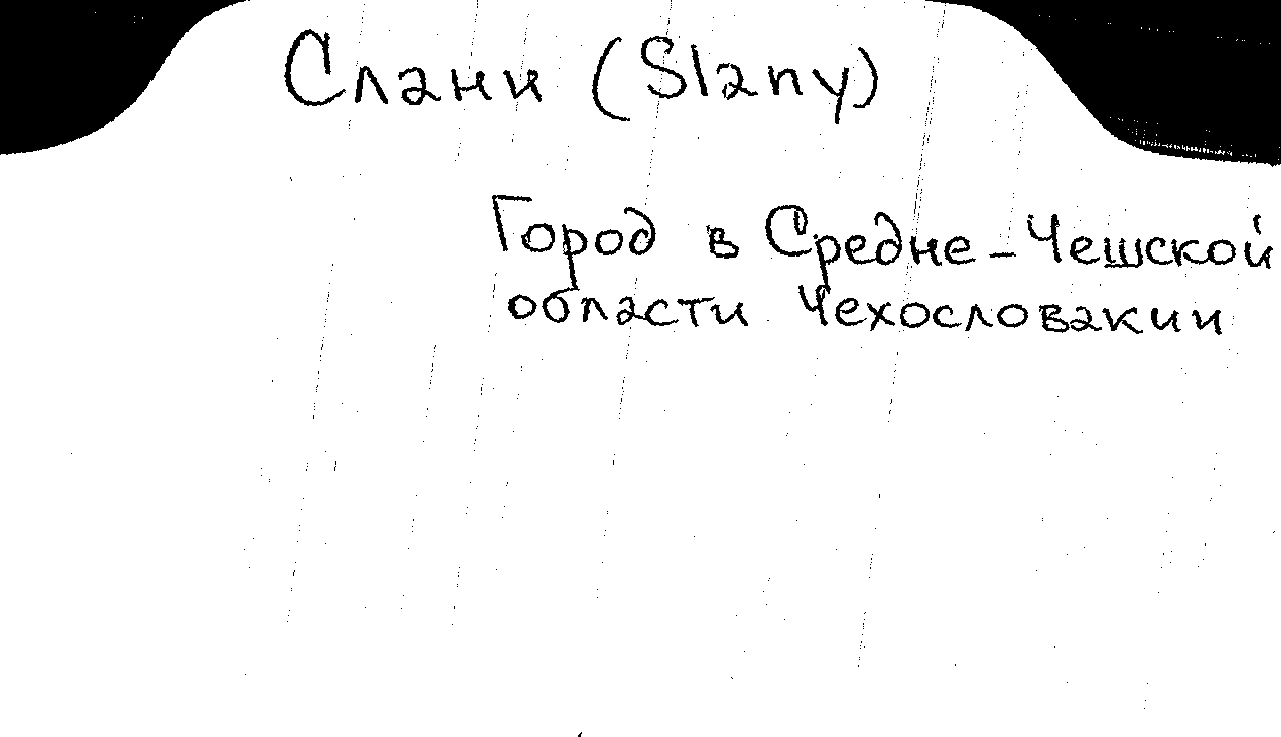 Слани (Slany)
Город в Средне-Чешской
области Чехословакии